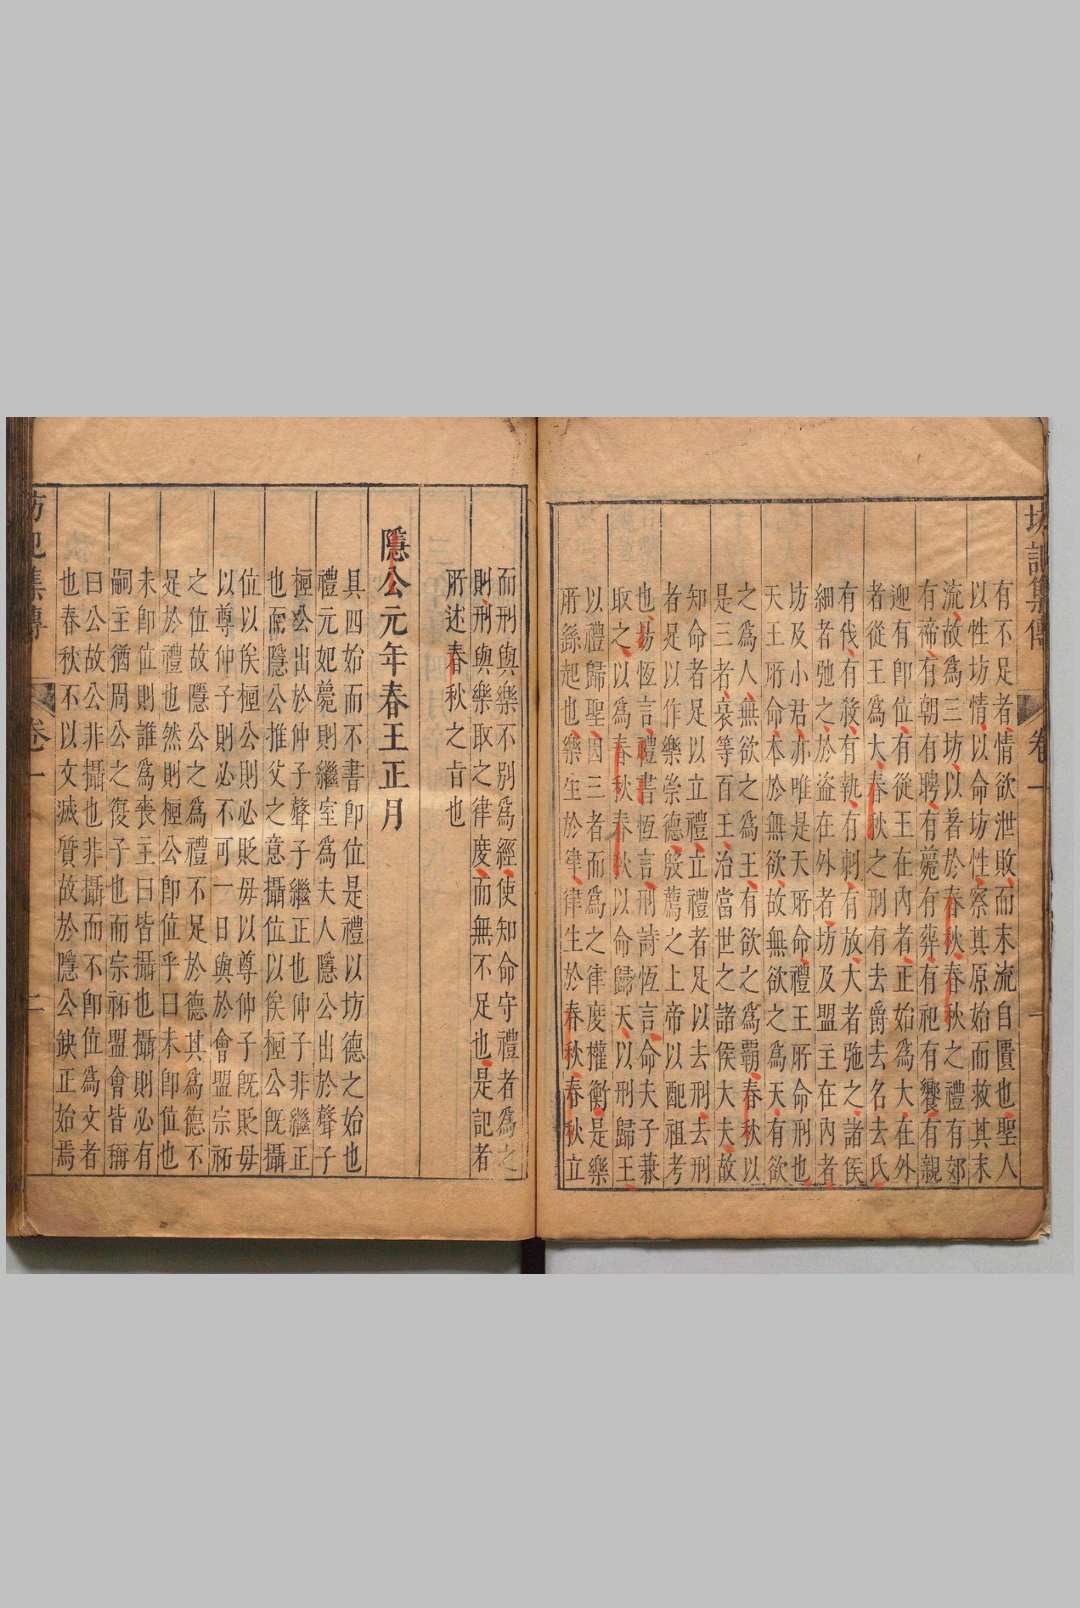 坊記集傳
卷一
一
有不足者情欲泄敗而末流自匱也聖人
以性坊情以命坊性察其原始而救其末
流故為三坊以著於春秋春秋之禮有郊
有禘有朝有聘有薨有葬有祀有饗有親
迎有卽位有從王在內者正始為大在外
者從王爲大春秋之刑有去爵去名去氏
有伐有殺有執有刺有放大者弛之諸侯
細者弛之於盜在外者坊及盟主在內者
坊及小君亦唯是天所命禮王所命刑也
天王所命本於無欲故無欲之爲天有欲
之爲人無欲之之爲王有欲之之爲霸春秋以
是三者衰等百王治當世之諸侯大夫故
知命者足以立禮立禮者足以去刑去刑
者是以作樂崇德殷薦之上帝以配祖考
也易恆言禮書恆言刑詩恆言命夫子兼
取之以爲春秋春秋以命歸天以刑歸王
以禮歸聖因三者而爲之律度權衡是樂
所繇起也樂生於律律生於春秋春秋立
而刑與樂不別爲經使知命守禮者爲之
則刑與樂取之律度而無不足也是記者
所述春秋之旨也
隱公元年春王正月
具四始而不書卽位是禮以坊德之始也
禮元妃薨則繼室爲夫人隱公出於聲子
桓公出於仲子聲子繼正也仲子非繼正
也而隱公推父之意攝位以俟桓公旣攝
位以俟桓公則必貶毋以尊仲子旣貶毋
以尊仲子則必不可一日與於會盟宗祏
之位故隱公之爲禮不足於德其爲德不
足於禮也然則桓公卽位乎曰未卽位也
未卽位則誰爲喪主曰皆攝也攝則必有
嗣主猶周公之復子也而宗祏盟會皆稱
曰公故公非攝也非攝而不卽位爲文者
也春秋不以文滅質故於隱公缺正始焉
坊記集傳
卷一
二